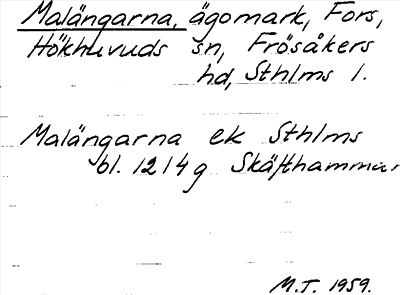 Malängarna, ägomark, Fors,
Hökhuvuds sn, Frösåkers
hd, Sthlms l.
Malängarna ek Sthlms
bl. 1214g Skäfthammar
M.T. 1959.